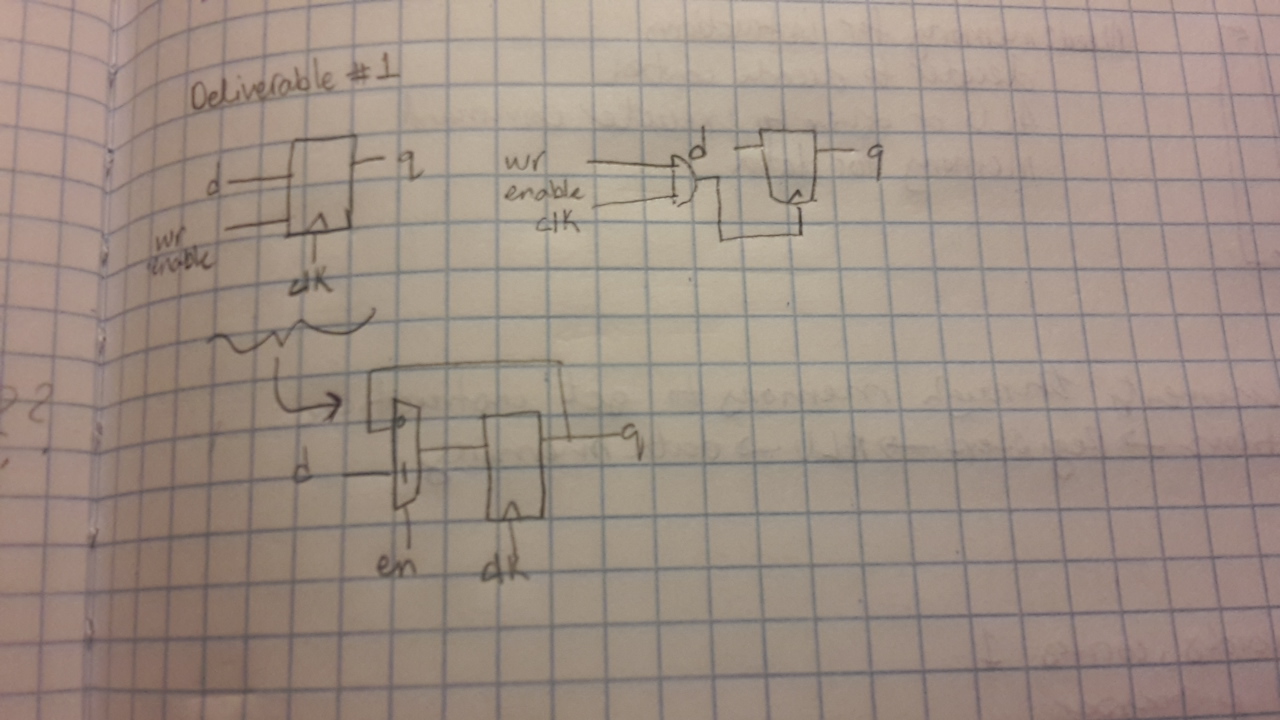 Deliverable #1
d
wr
enable
clk
q
wr
enable
clk
d
q
d
0
1
en
clk
q